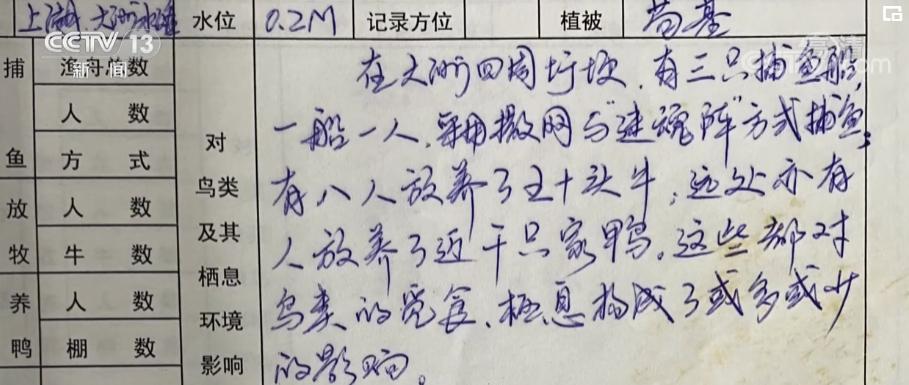 上湖 大洲水滩 水位 0.2M 记录方位 植被 苔基
CCTV 13
新闻
高清
.com
捕鱼 渔舟总数
人数
方式
放牧 人数
牛数
养鸭 人数
棚数
对鸟类及其栖息环境影响
在大洲四周圩埂,有三只捕鱼船
一船一人,采用撒网与"迷魂阵"方式捕鱼;
有八人放养了五十头牛;远处亦有
人放养了近千只家鸭。这些都对
鸟类的觅食、栖息构成了或多或少
的影响。